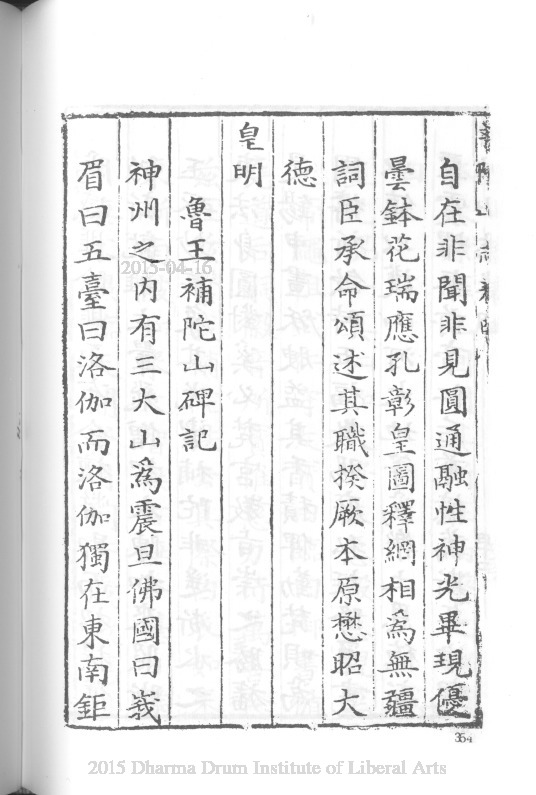 自在非聞非見圓通融性神光畢現優
曇鉢花瑞應孔彰皇圖釋網相爲無疆
詞臣承命頌述其職揆厥本原懋昭大
德
皇明
魯王補陀山碑記
神州之內有三大山爲震旦佛國曰峩
眉曰五臺曰洛伽而洛伽獨在東南鉅
354
2015-04-16
2015 Dharma Drum Institute of Liberal Arts